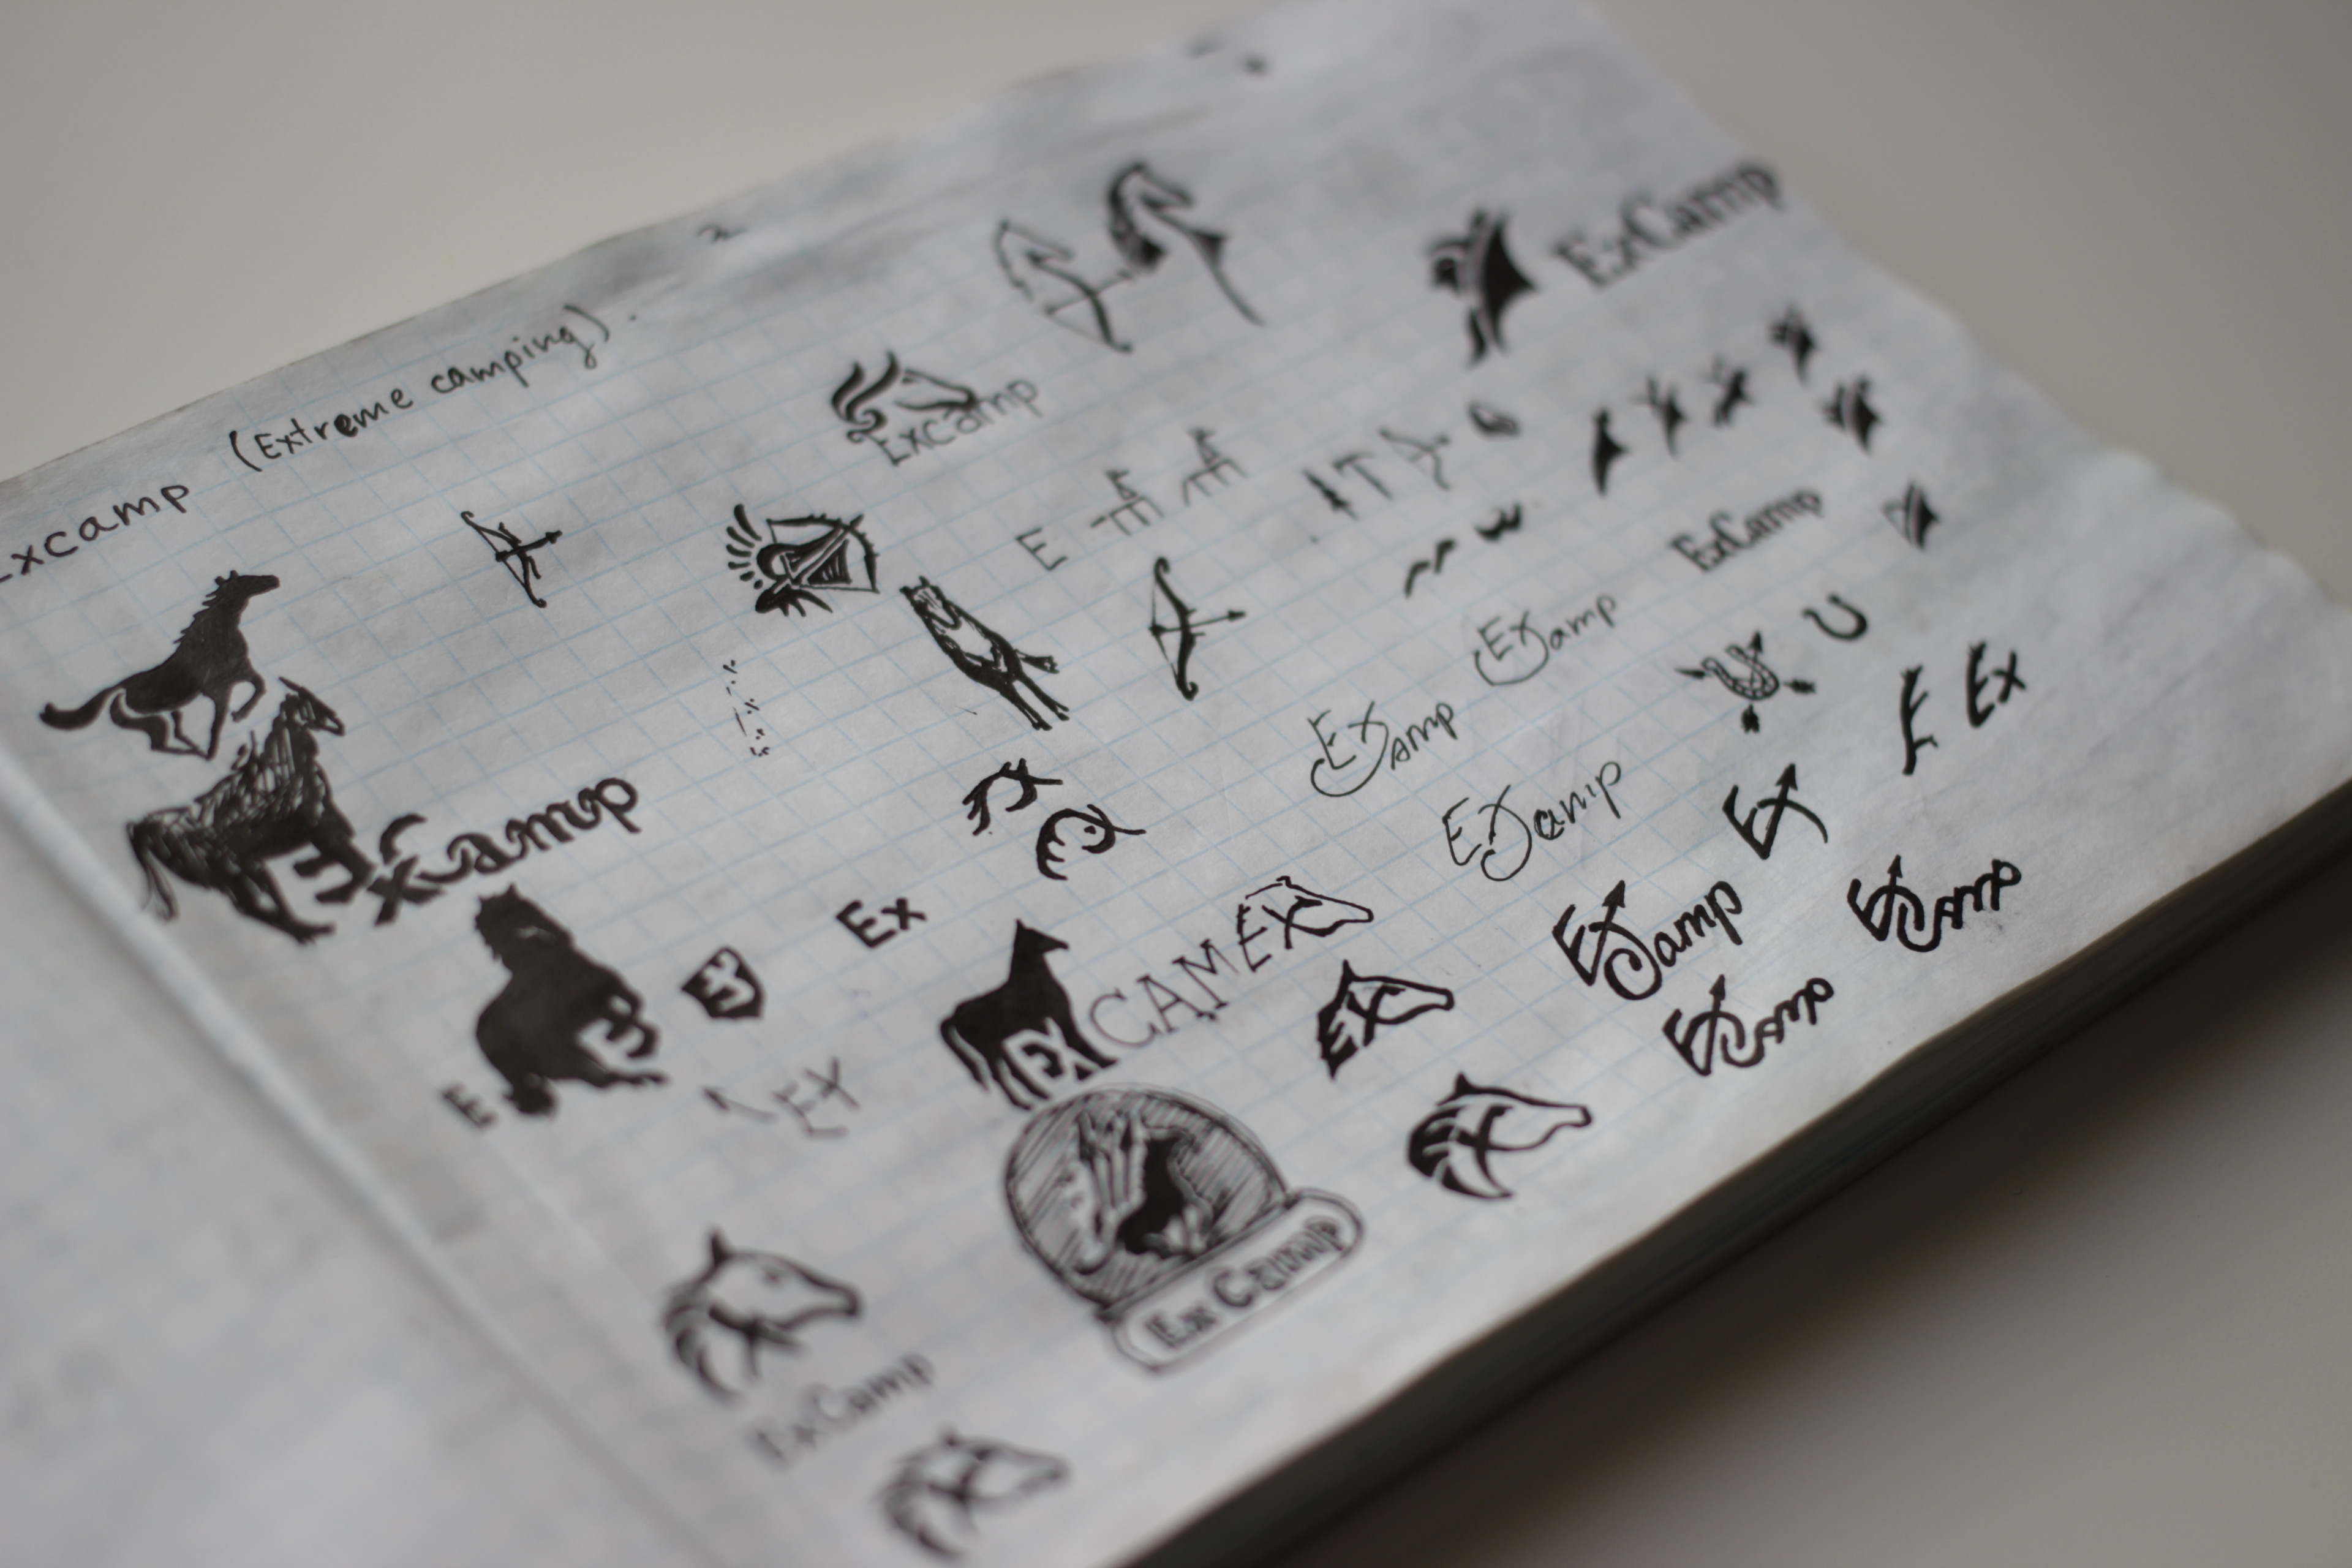 Excamp (Extreme camping).
ExCamp
Excamp
E
ExCamp
ExCamp
ExCamp
ExCamp
ExCamp
E Ex
Excamp
ExCamp
Ex
Ex
EX
CAM
EX
EX
ExCamp
ExCamp
ExCamp
E
E
EX
EX
Ex Camp
ExCamp